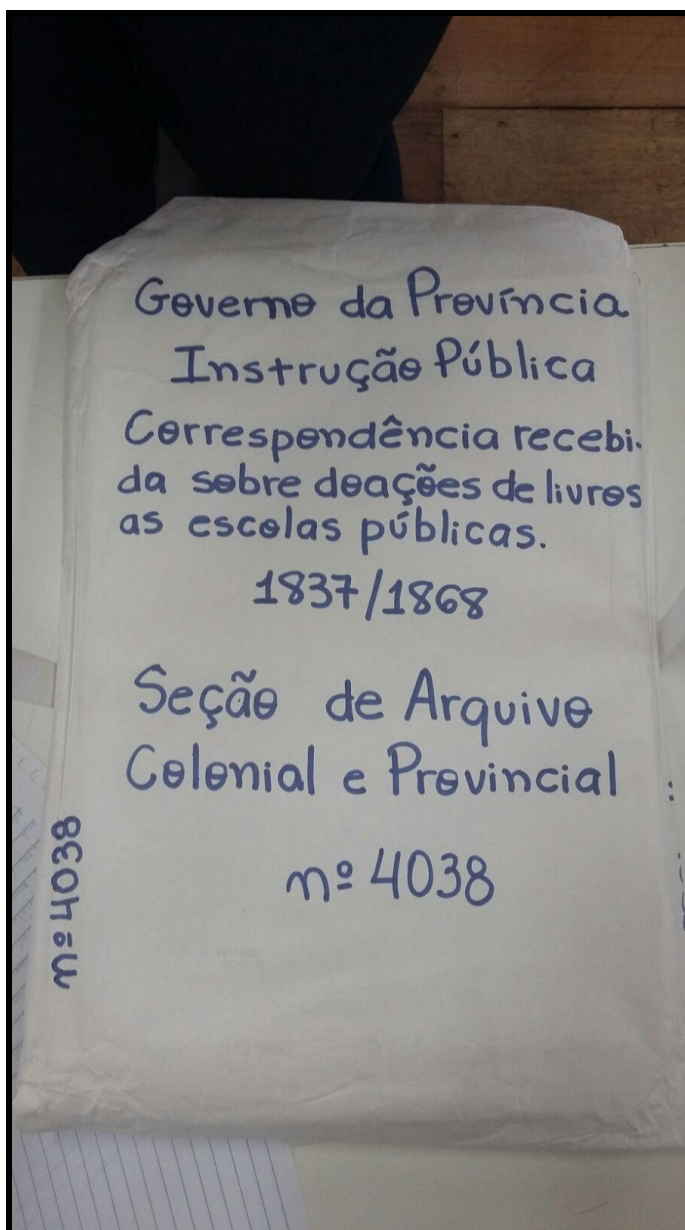 Governo da Província
Instrução Pública
Correspondência recebi-
da sobre doações de livros
as escolas públicas.
1837/1868
Seção de Arquivo
Colonial e Provincial
nº 4038
nº 4038